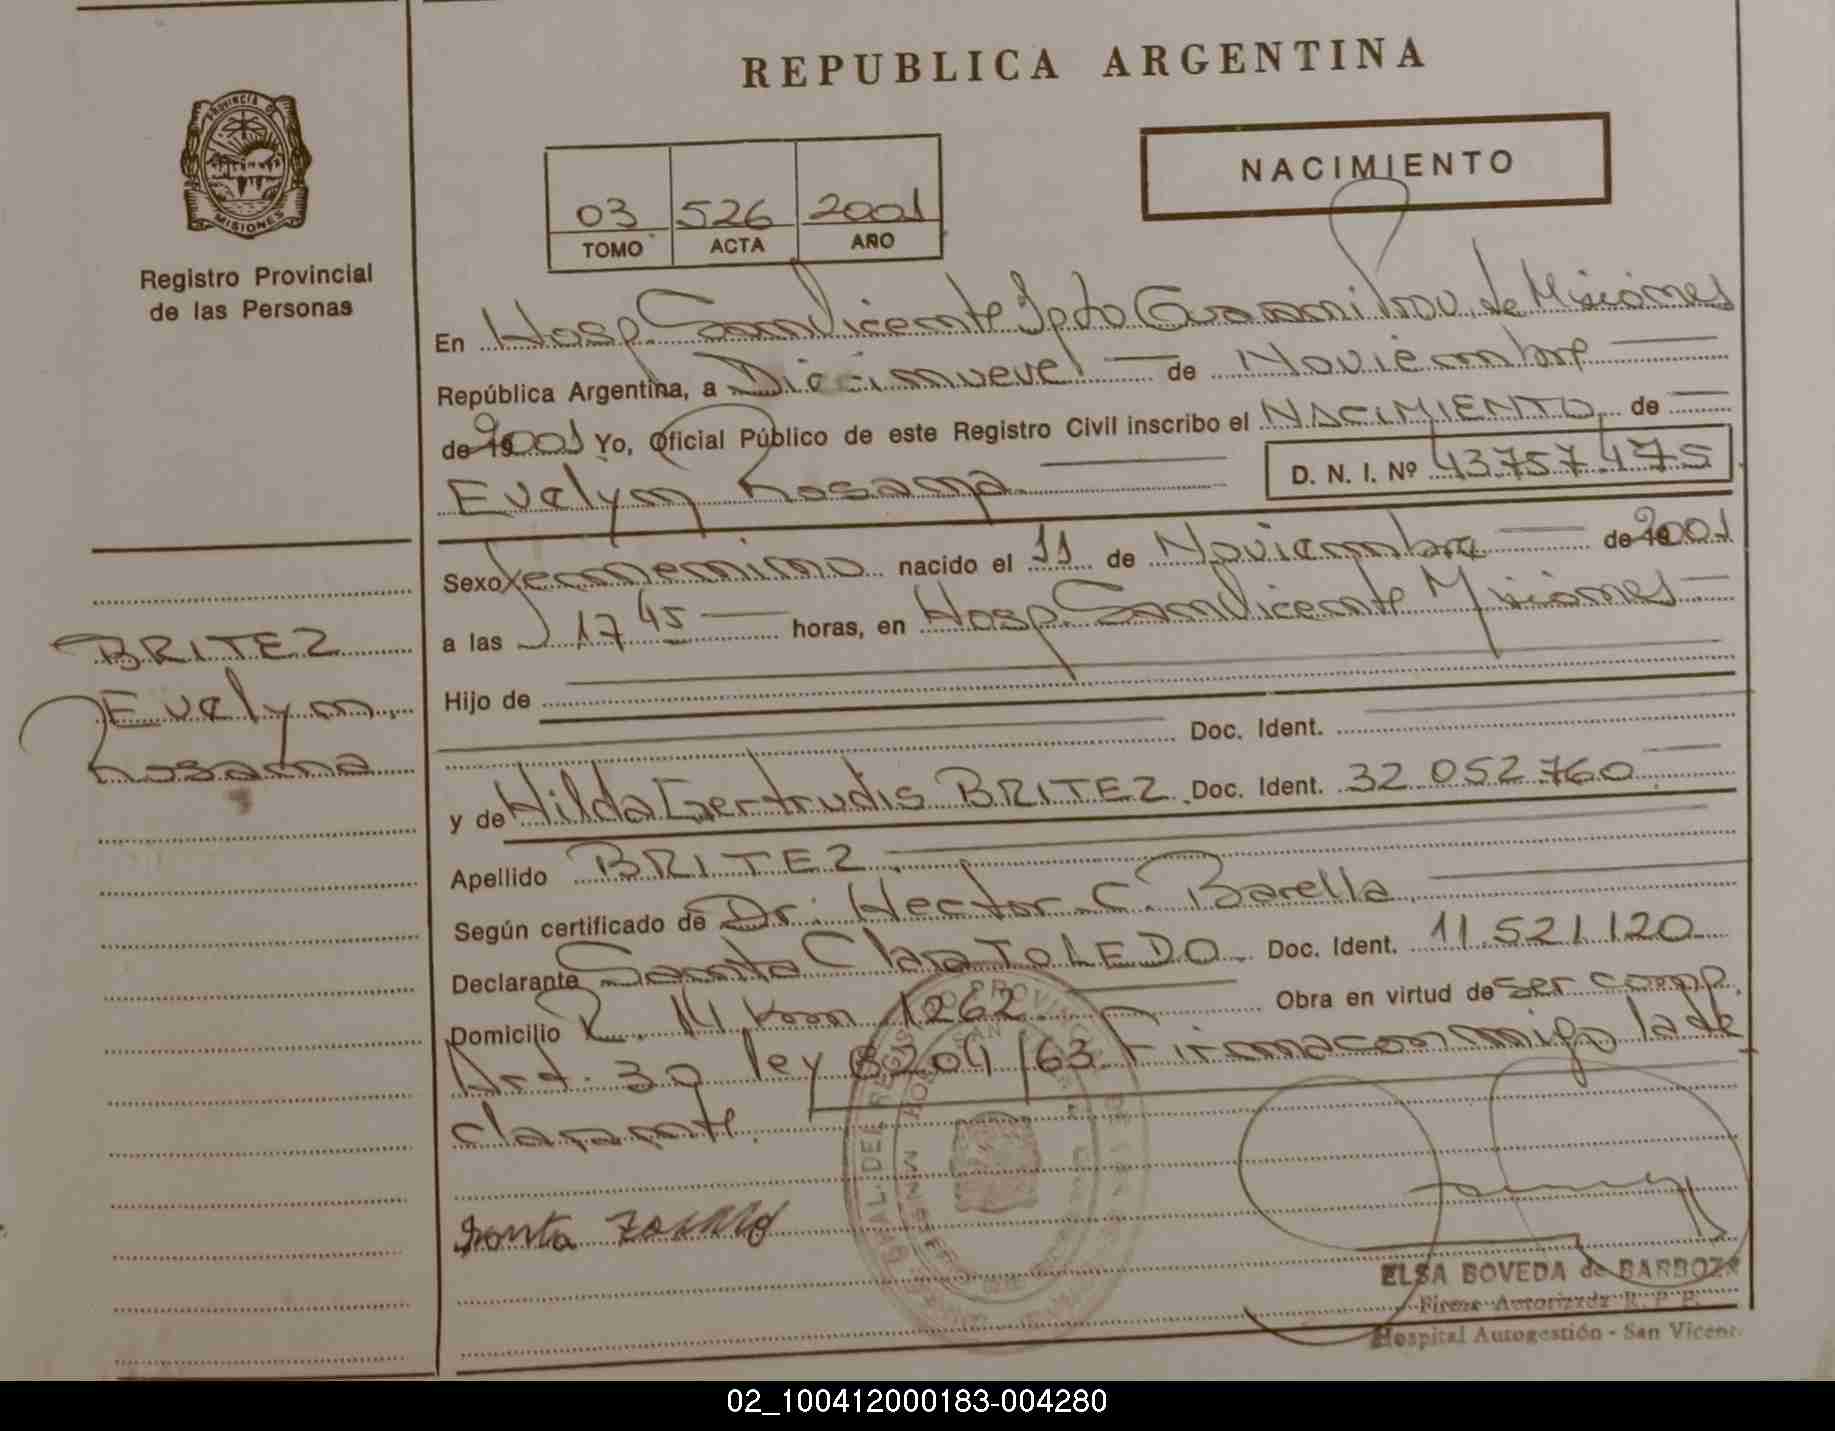 REPUBLICA ARGENTINA
NACIMIENTO
PROVINCIA DE
MISIONES
Registro Provincial
de las Personas
03 526 2001
TOMO ACTA AÑO
En Hosp. San Vicente Dpto Guarani Prov. de Misiones
República Argentina, a Diecinueve de Noviembre
de 2001 Yo, Oficial Público de este Registro Civil inscribo el NACIMIENTO de
Evelyn Rosana D. N. I. Nº 43757475
Sexo femenino nacido el 11 de Noviembre de 2001
a las 17 45 horas, en Hosp. San Vicente Misiones
Hijo de
Doc. Ident.
y de Hilda Gertrudis BRITEZ Doc. Ident. 32 052 760
Apellido BRITEZ
Según certificado de Dr. Hector C. Barella
Declarante Santa Clara TOLEDO Doc. Ident. 11.521.120
Domicilio R. 14 Km 1262 Obra en virtud de ser comp.
Art. 30 ley 8204/63 Firma conmigo la de
clarante.
BRITEZ
Evelyn
Rosana
Santa Toledo
ELSA BOVEDA de BARBOZA
Firma Autorizada R. P. P.
Hospital Autogestión - San Vicente
02_100412000183-004280